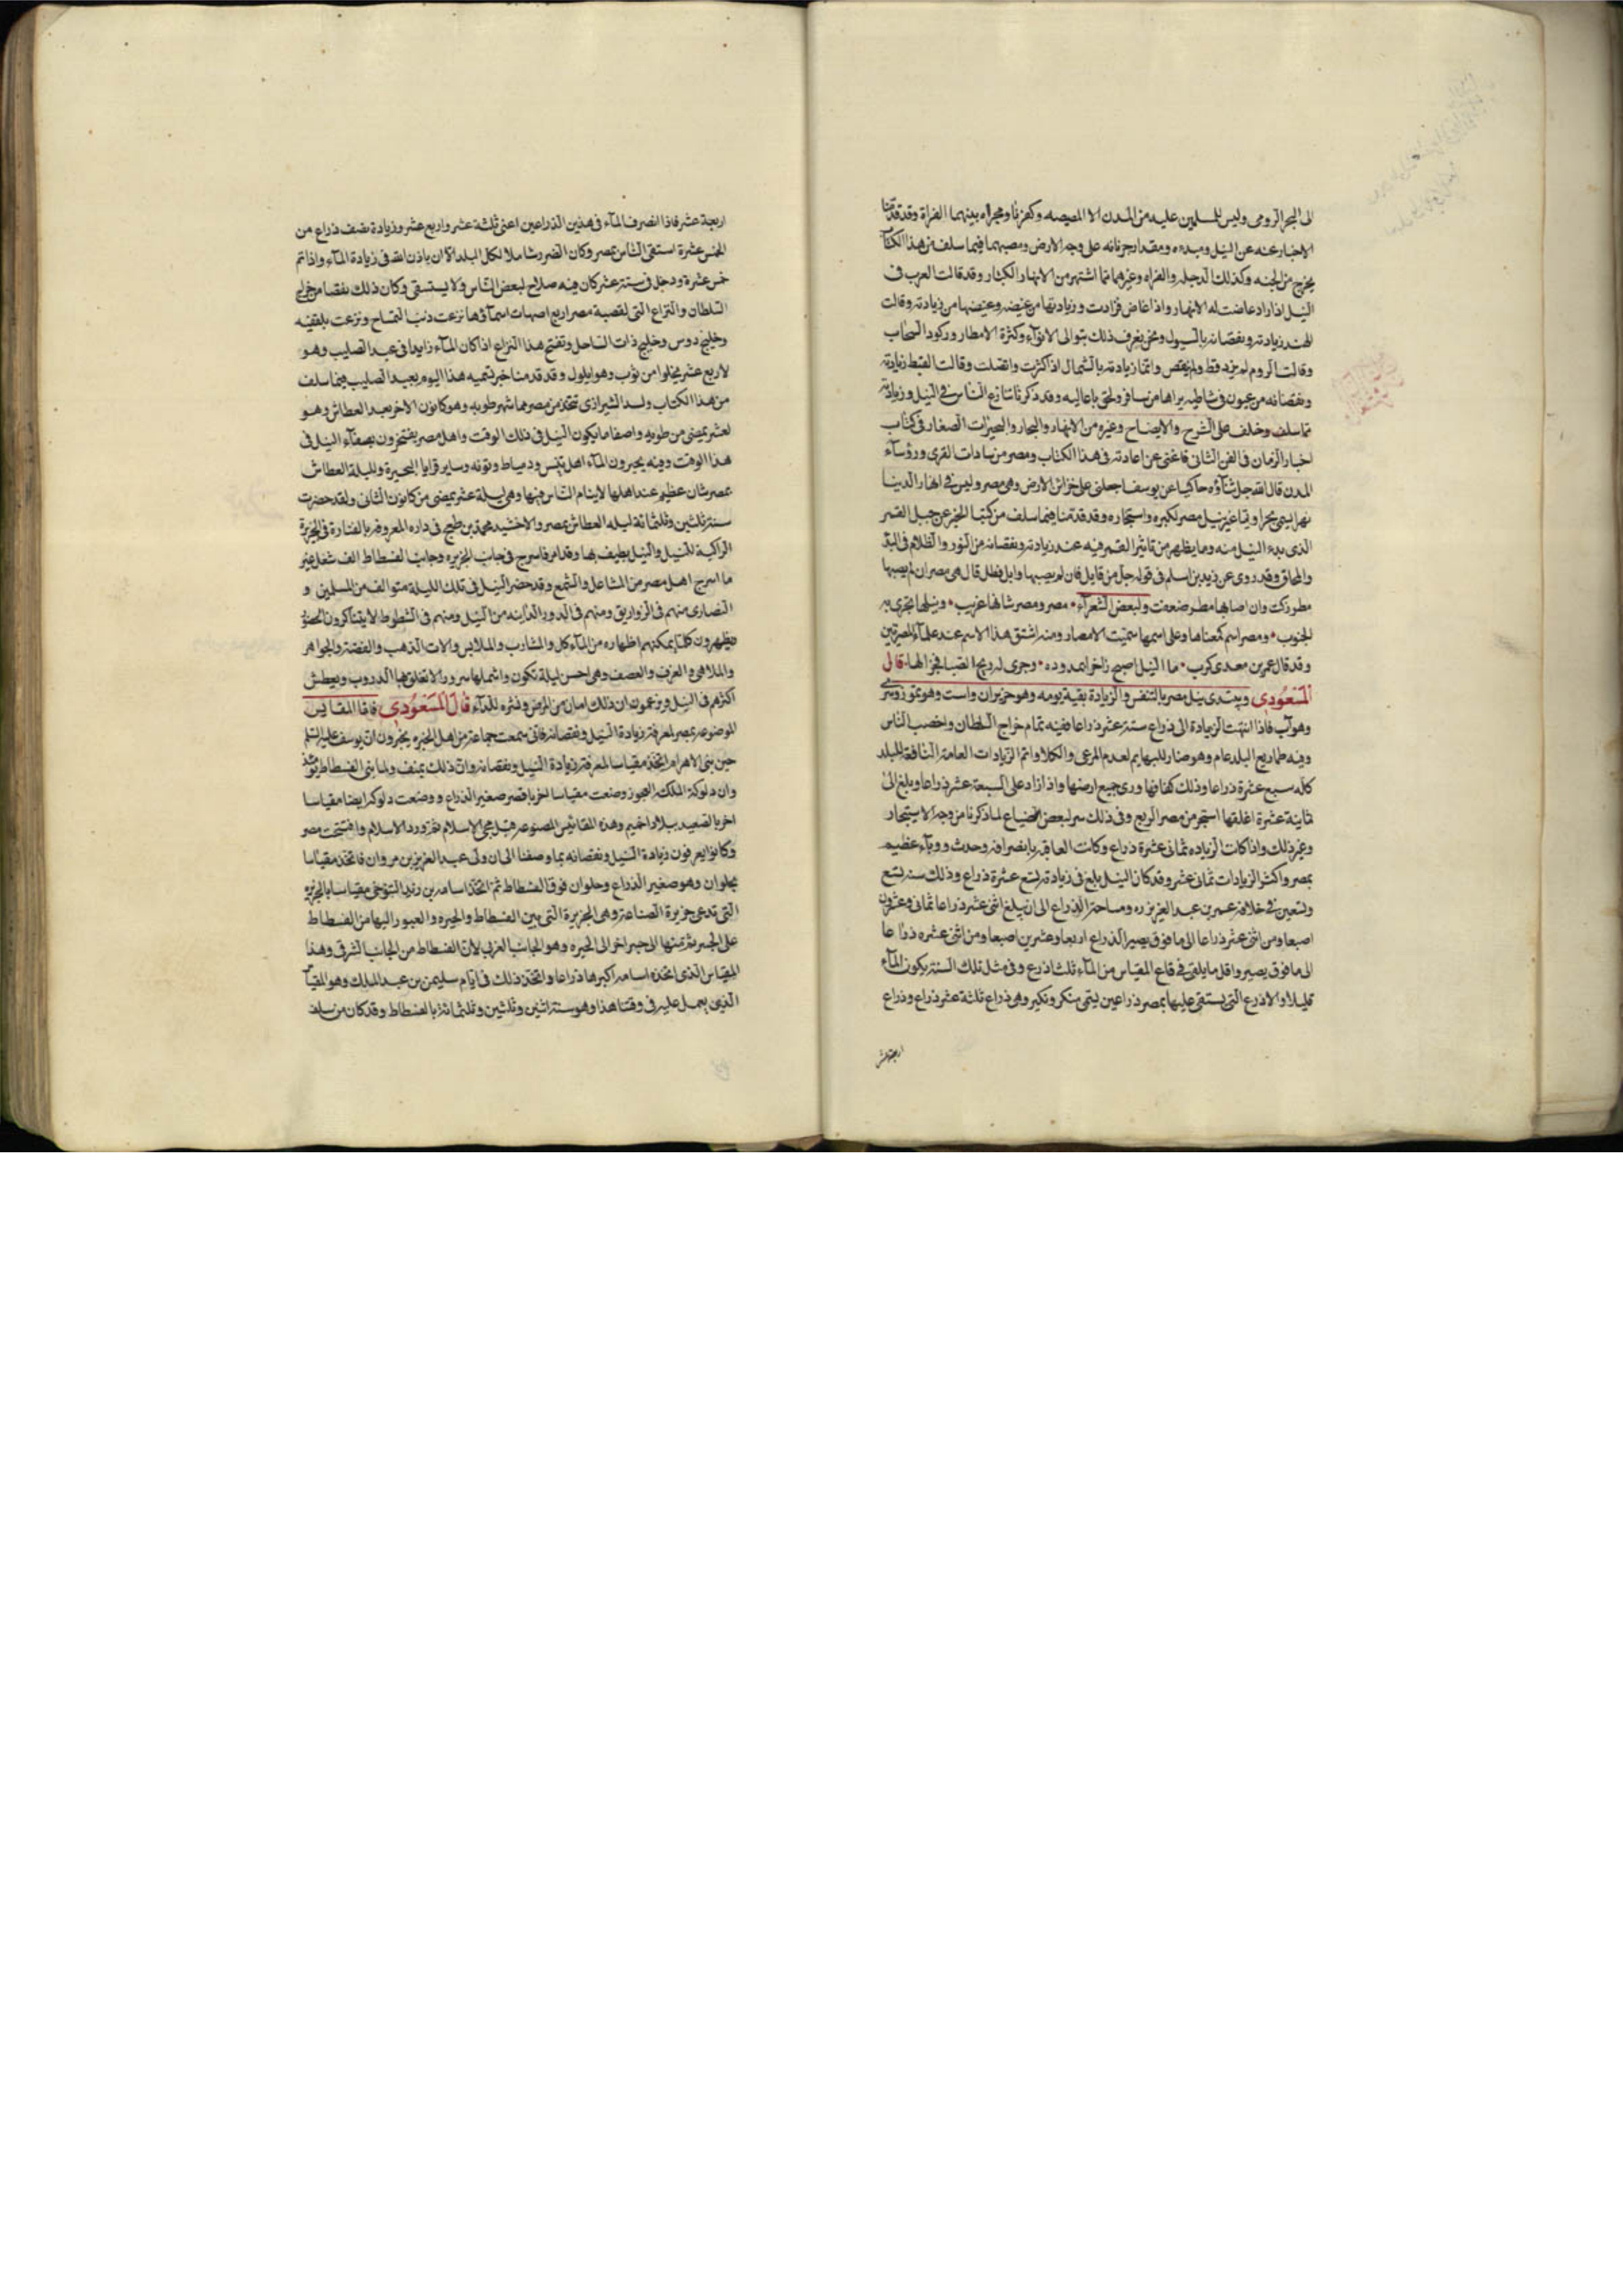 الى البحر الرومى وليس للمسلمين عليه من المدن الا المصيصه وكفرتا ومجراه بينهما الفراة وقد قدمنا
الاخبار عنه عن النيل ومبدءه ومقدار جريانه على وجه الارض ومصبهما فيما سلف من هذا الكتاب
يخرج من الجنه وكذلك الدجله والفراه وغيرهما مما اشتهر من الانهار الكبار وقد قالت العرب فى
النيل اذا زاد غاضت له الانهار واذا غاض فزادت وزيادتها من غيضه وغيضها من زيادته وقالت
الهند زيادته ونقصانه بالسيول ونحن نعرف ذلك بتوالى الانوآء وكثرة الامطار وركود السحاب
وقالت الروم لم يزد قط ولم ينقص وانما زيادته بالشمال اذا كثرت واتصلت وقالت القبط زيادته
ونقصانه من عيون فى شاطيه يراها من سافر ولحق باعاليه وقد ذكرنا تنازع الناس فى النيل وزيادته
مما سلف وخلف على الشرح والايضاح وغيره من الانهار والبحار والبحيرات الصغار فى كتاب
اخبار الزمان فى الفن الثانى فاغنى عن اعادته فى هذا الكتاب ومصر من سادات القرى ورؤسآء
المدن قال الله جل ثناؤه حاكيا عن يوسف اجعلنى على خزائن الارض وهى مصر وليس فى انهار الدنيا
نهرا يسمى بحرا ويما غير نيل مصر لكبره واستبحاره وقد قدمنا فيما سلف من كتبنا الخبر عن جبل القمر
الذى بدء النيل منه وما يظهر من تاثير القمر فيه عند زيادته ونقصانه من النور والظلام فى البدر
والمحاق وقد روى عن زيد بن اسلم فى قوله جل من قايل فان لم يصبها وابل فطل قال هى مصر ان لم يصبها
مطر زكت وان اصابها مطر ضعفت ولبعض الشعرآء • مصر ومصر شانها عجيب • ونيلها تجرى به
الجنوب • ومصر اسم كمعناها وعلى اسمها سميت الامصار ومنه اشتق هذا الاسم عند علمآء المصرتين
وقد قال عمر بن معدى كرب • ما النيل اصبح زاخرا بمدوده • وجرى له ريح الصبا فجرا لها • قال
المسعودى ويبتدى نيل مصر بالتنفس والزيادة بقية يومه وهو حزيران واست وهو تموز ومسرى
وهو آب فاذا انتهت الزيادة الى ذراع ستة عشر ذراعا ففيه تمام خراج السلطان واخصب الناس
وفيه ظما ربع البلد عام وهو ضار للبهايم لعدم المرعى والكلا واتم الزيادات العامة النافعة للبلد
كله سبع عشرة ذراعا وذلك كفافها ورى جميع ارضها واذا زاد على السبعة عشر ذراعا وبلغ الى
ثمانية عشرة اغلقها استبحر من مصر الربع وفى ذلك ضرر لبعض الضياع لما ذكرنا من وجه الاستبحار
وغير ذلك واذا كانت الزياده ثمانى عشرة ذراع وكانت العاقبه بانصرافه وحدث ووبآء عظيم
بمصر واكثر الزيادات ثمانى عشر وقد كان النيل بلغ فى زيادته تسع عشرة ذراع وذلك سنه تسع
وتسعين فى خلافه عمر بن عبد العزيز ره ومساحة الذراع الى ان يبلغ اثنى عشر ذراعا ثمانى وعشرون
اصبعا ومن اثنى عشر ذراعا الى ما فوق يصير الذراع اربعا وعشرين اصبعا ومن اثنى عشره ذراعا
الى ما فوق يصير واقل ما يلقى فى قاع المقياس من المآء ثلث اذرع وفى مثل تلك السنة يكون المآء
قليلا والاذرع التى يستقى عليها بمصر ذراعين يسمى منكر ونكير وهى ذراع ثلثة عشر ذراع وذراع
اربعة عشر
اربعة عشر فاذا انصرف المآء فى هذين الذراعين اعنى ثلثة عشر واربع عشر وزيادة نصف ذراع من
الخمس عشرة استقى الناس بمصر وكان الضرر شاملا لكل البلد الا ان ياذن الله فى زيادة المآء واذا تم
خمس عشرة ودخل فى ستة عشر كان فيه صلاح لبعض الناس ولا يستسقى وكان ذلك نقصا من خراج
السلطان والتراع التى لقصبة مصر اربع امهات اسمآؤها ترعت ذنب التمساح وترعت بلقينه
وخليج دوس وخليج ذات الساحل وتفتح هذا التراع اذا كان المآء زايدا فى عيد الصليب وهو
لاربع عشر يخلوا من توب وهو ايلول وقد قدمنا خبر تسميه هذا اليوم بعيد الصليب فيما سلف
من هذا الكتاب ولسد الشيرازى تتخذ من مصر مما شهر طوبه وهو كانون الاخر بعيد العطاش وهو
لعشر يمضى من طوبه واصفا ما يكون النيل فى ذلك الوقت واهل مصر يفتخرون بصفآء النيل فى
هذا الوقت وفيه يجبرون المآء اهل تنيس ودمياط وتونه وساير قرايا البحيرة ولليلة العطاش
بمصر شان عظيم عند اهلها لا ينام الناس فيها وهى ليلة عشر يمضى من كانون الثانى ولقد حضرت
سنة ثلثين وثلثمائة ليله العطاش بمصر والاخشيد محمد بن طغج فى داره المعروفه بالمنارة فى الجزيرة
الراكبة للنيل والنيل يطيف بها وقد امر فاسرج فى جانب الجزيره وجانب الفسطاط الف شعل غير
ما اسرج اهل مصر من المشاعل والشمع وقد حضر النيل فى تلك الليلة متو الف من المسلمين و
النصارى منهم فى الزواريق ومنهم فى الدور الدانيه من النيل ومنهم فى الشطوط لا يتناكرون الحضور
يظهرون كلما يمكنهم اظهاره من المآءكل والمشارب والملابس والات الذهب والفضة والجواهر
والملاهى والعزف والعصف وهى احسن ليلة تكون واشملها سرور الا تغلق بها الدروب ويعطش
اكثرهم فى النيل ويزعمون ان ذلك امان من المرض ونشره للدآء قال المسعودى فاما المقاييس
الموضوعه بمصر لمعرفة زيادة النيل ونقصانه فانى سمعت جماعة من اهل الخبره يخبرون ان يوسف عليه السلم
حين بنى الاهرام اتخذ مقياسا لمعرفة زيادة النيل ونقصانه وان ذلك بمنف ولما بنى الفسطاط يومئذ
وان دلوكة الملكه العجوز وضعت مقياسا اخر باقصر صغير الذراع ووضعت دلوكه ايضا مقياسا
اخر بالصعيد ببلاد اخميم وهذه المقائيس المصنوعه قبل مجئ الاسلام ثم ورد الاسلام وافتتحت مصر
وكانوا يعرفون زيادة النيل ونقصانه بما وصفنا الى ان ولى عبد العزيز بن مروان فاتخذ مقياسا
بحلوان وهو صغير الذراع وحلوان فوق الفسطاط ثم اتخذ اسامه بن زيد التنوخى مقياسا بالجزيره
التى تدعى جزيرة الصناعة وهى الجزيرة التى بين الفسطاط والجيره والعبور اليها من الفسطاط
على الجسر ثم منها الى جسر اخر الى الجيره وهو الجانب الغربى لان الفسطاط من الجانب الشرقى وهذا
المقياس الذى اتخذه اسامه اكبرها ذراعا واتخذ ذلك فى ايام سليمن بن عبد الملك وهو المقياس
الذى يعمل عليه فى وقتنا هذا وهو سنة اثنين وثلثين وثلثمائة بالفسطاط وقد كان من سلف